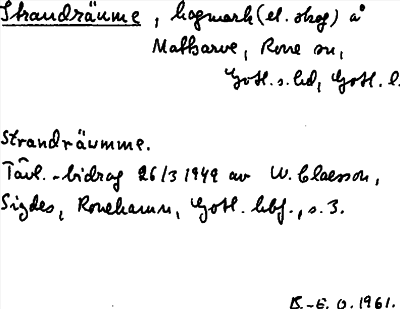 Strandräumme, hagmark (el. skog) å
Matsarve, Rone sn,
Gotl. s. hd, Gotl. l.
Strandräumme.
Tävl.-bidrag 26/3 1949 av W. Claesson,
Sigdes, Ronehamn, Gotl. hbf., s. 3.
B.-E. O. 1961.